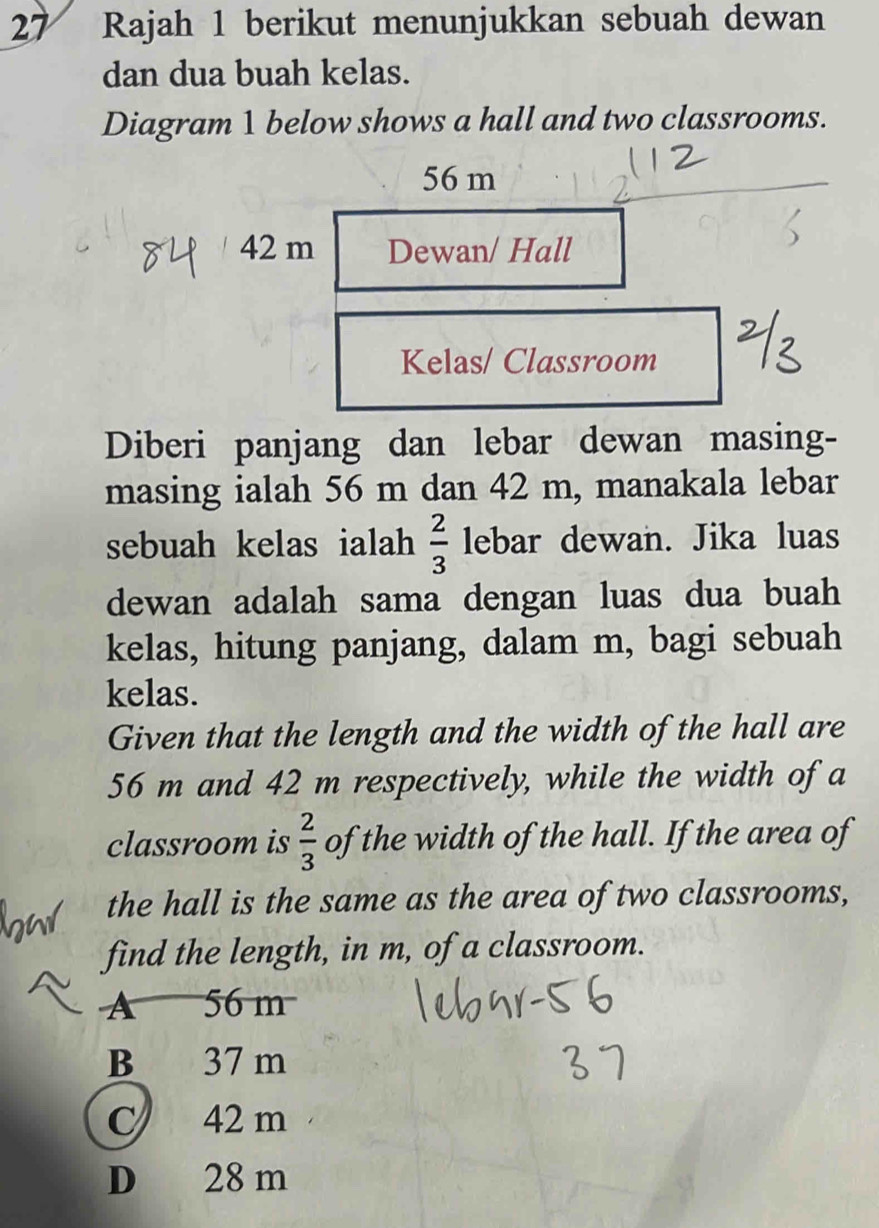 27 Rajah 1 berikut menunjukkan sebuah dewan
dan dua buah kelas.
Diagram 1 below shows a hall and two classrooms.
112
56 m
84
42 m
Dewan/ Hall
Kelas/ Classroom
2/3
Diberi panjang dan lebar dewan masing-
masing ialah 56 m dan 42 m, manakala lebar
sebuah kelas ialah 2/3 lebar dewan. Jika luas
dewan adalah sama dengan luas dua buah
kelas, hitung panjang, dalam m, bagi sebuah
kelas.
Given that the length and the width of the hall are
56 m and 42 m respectively, while the width of a
classroom is 2/3 of the width of the hall. If the area of
the hall is the same as the area of two classrooms,
find the length, in m, of a classroom.
A 56 m
lebar-56
B 37 m
37
C 42 m
D 28 m